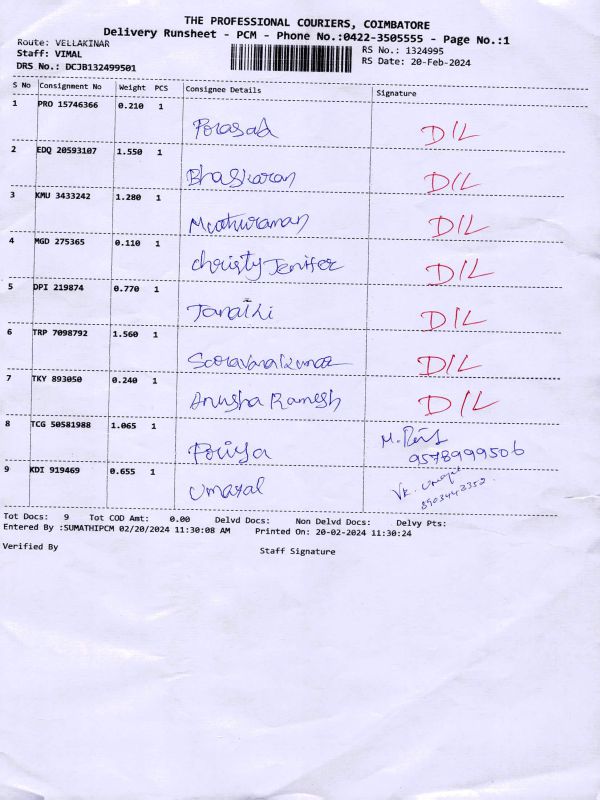 THE PROFESSIONAL COURIERS, COIMBATORE
Delivery Runsheet - PCM - Phone No.:0422-3505555 - Page No.:1
Route: VELLAKINAR
RS No.: 1324995
Staff: VIMAL
RS Date: 20-Feb-2024
DRS No.: DCJB132499501
S No Consignment No Weight PCS Consignee Details Signature
1 PRO 15746366 0.210 1
Porasad D/L
2 EDQ 20593107 1.550 1
Bhaskaran D/L
3 KMU 3433242 1.280 1
Muthuraman D/L
4 MGD 275365 0.110 1
Christy Jenifer D/L
5 DPI 219874 0.770 1
Janathi D/L
6 TRP 7098792 1.560 1
Saravanakumar D/L
7 TKY 893050 0.240 1
Anusha Ramesh D/L
8 TCG 50581988 1.065 1
Poriya M. 9578999506
9 KDI 919469 0.655 1
Umayal VK.
Tot Docs: 9 Tot COD Amt: 0.00 Delvd Docs: Non Delvd Docs: Delvy Pts:
Entered By :SUMATHIPCM 02/20/2024 11:30:08 AM Printed On: 20-02-2024 11:30:24
Verified By Staff Signature